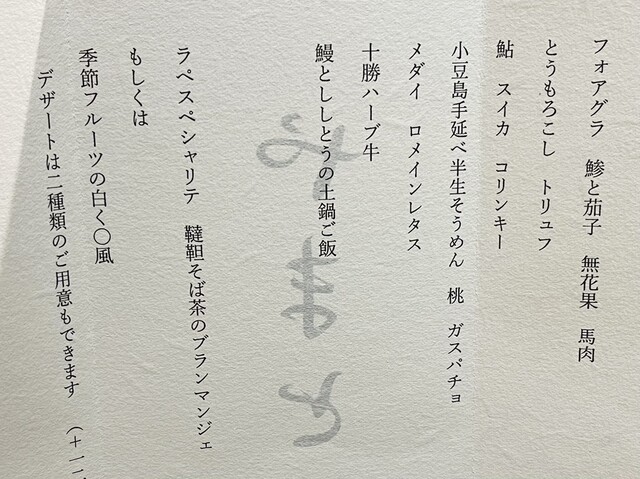 フォアグラ 鯵と茄子 無花果 馬肉
とうもろこし トリュフ
鮎 スイカ コリンキー
小豆島手延べ半生そうめん 桃 ガスパチョ
メダイ ロメインレタス
十勝ハーブ牛
鰻とししとうの土鍋ご飯
ラペスペシャリテ 韃靼そば茶のブランマンジェ
もしくは
季節フルーツの白く〇風
デザートは二種類のご用意もできます (+一